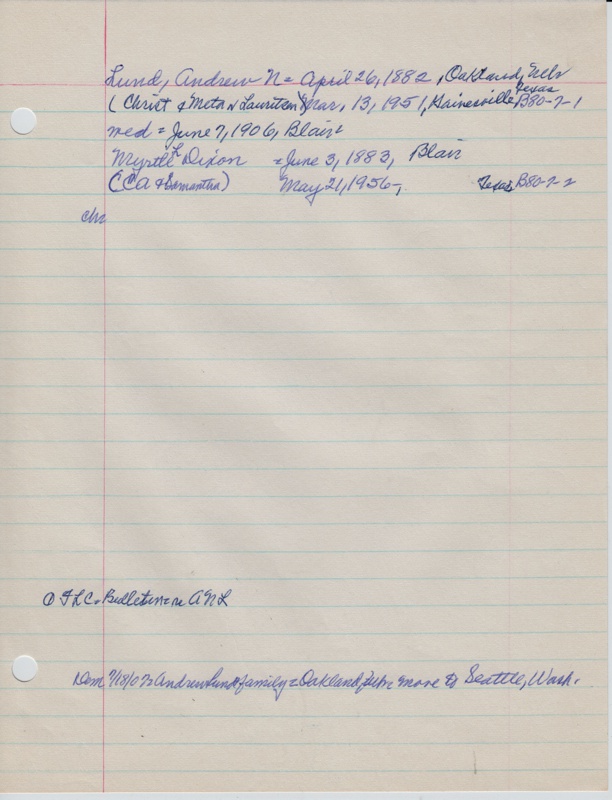 Lund, Andrew N = April 26, 1882, Oakland, Nebr
(Christ & Meta N Lauritsen) Mar. 13, 1951, Gainesville, Texas B80-7-1
med = June 7, 1906, Blair
Myrtle L Dixon = June 3, 1883, Blair
(CA & Samantha) May 21, 1956, Texas B80-7-2
chr
① FLC = Bulletin = re ANL
Dem 7/18/07 = Andrew Lund family = Oakland, Nebr move to Seattle, Wash.